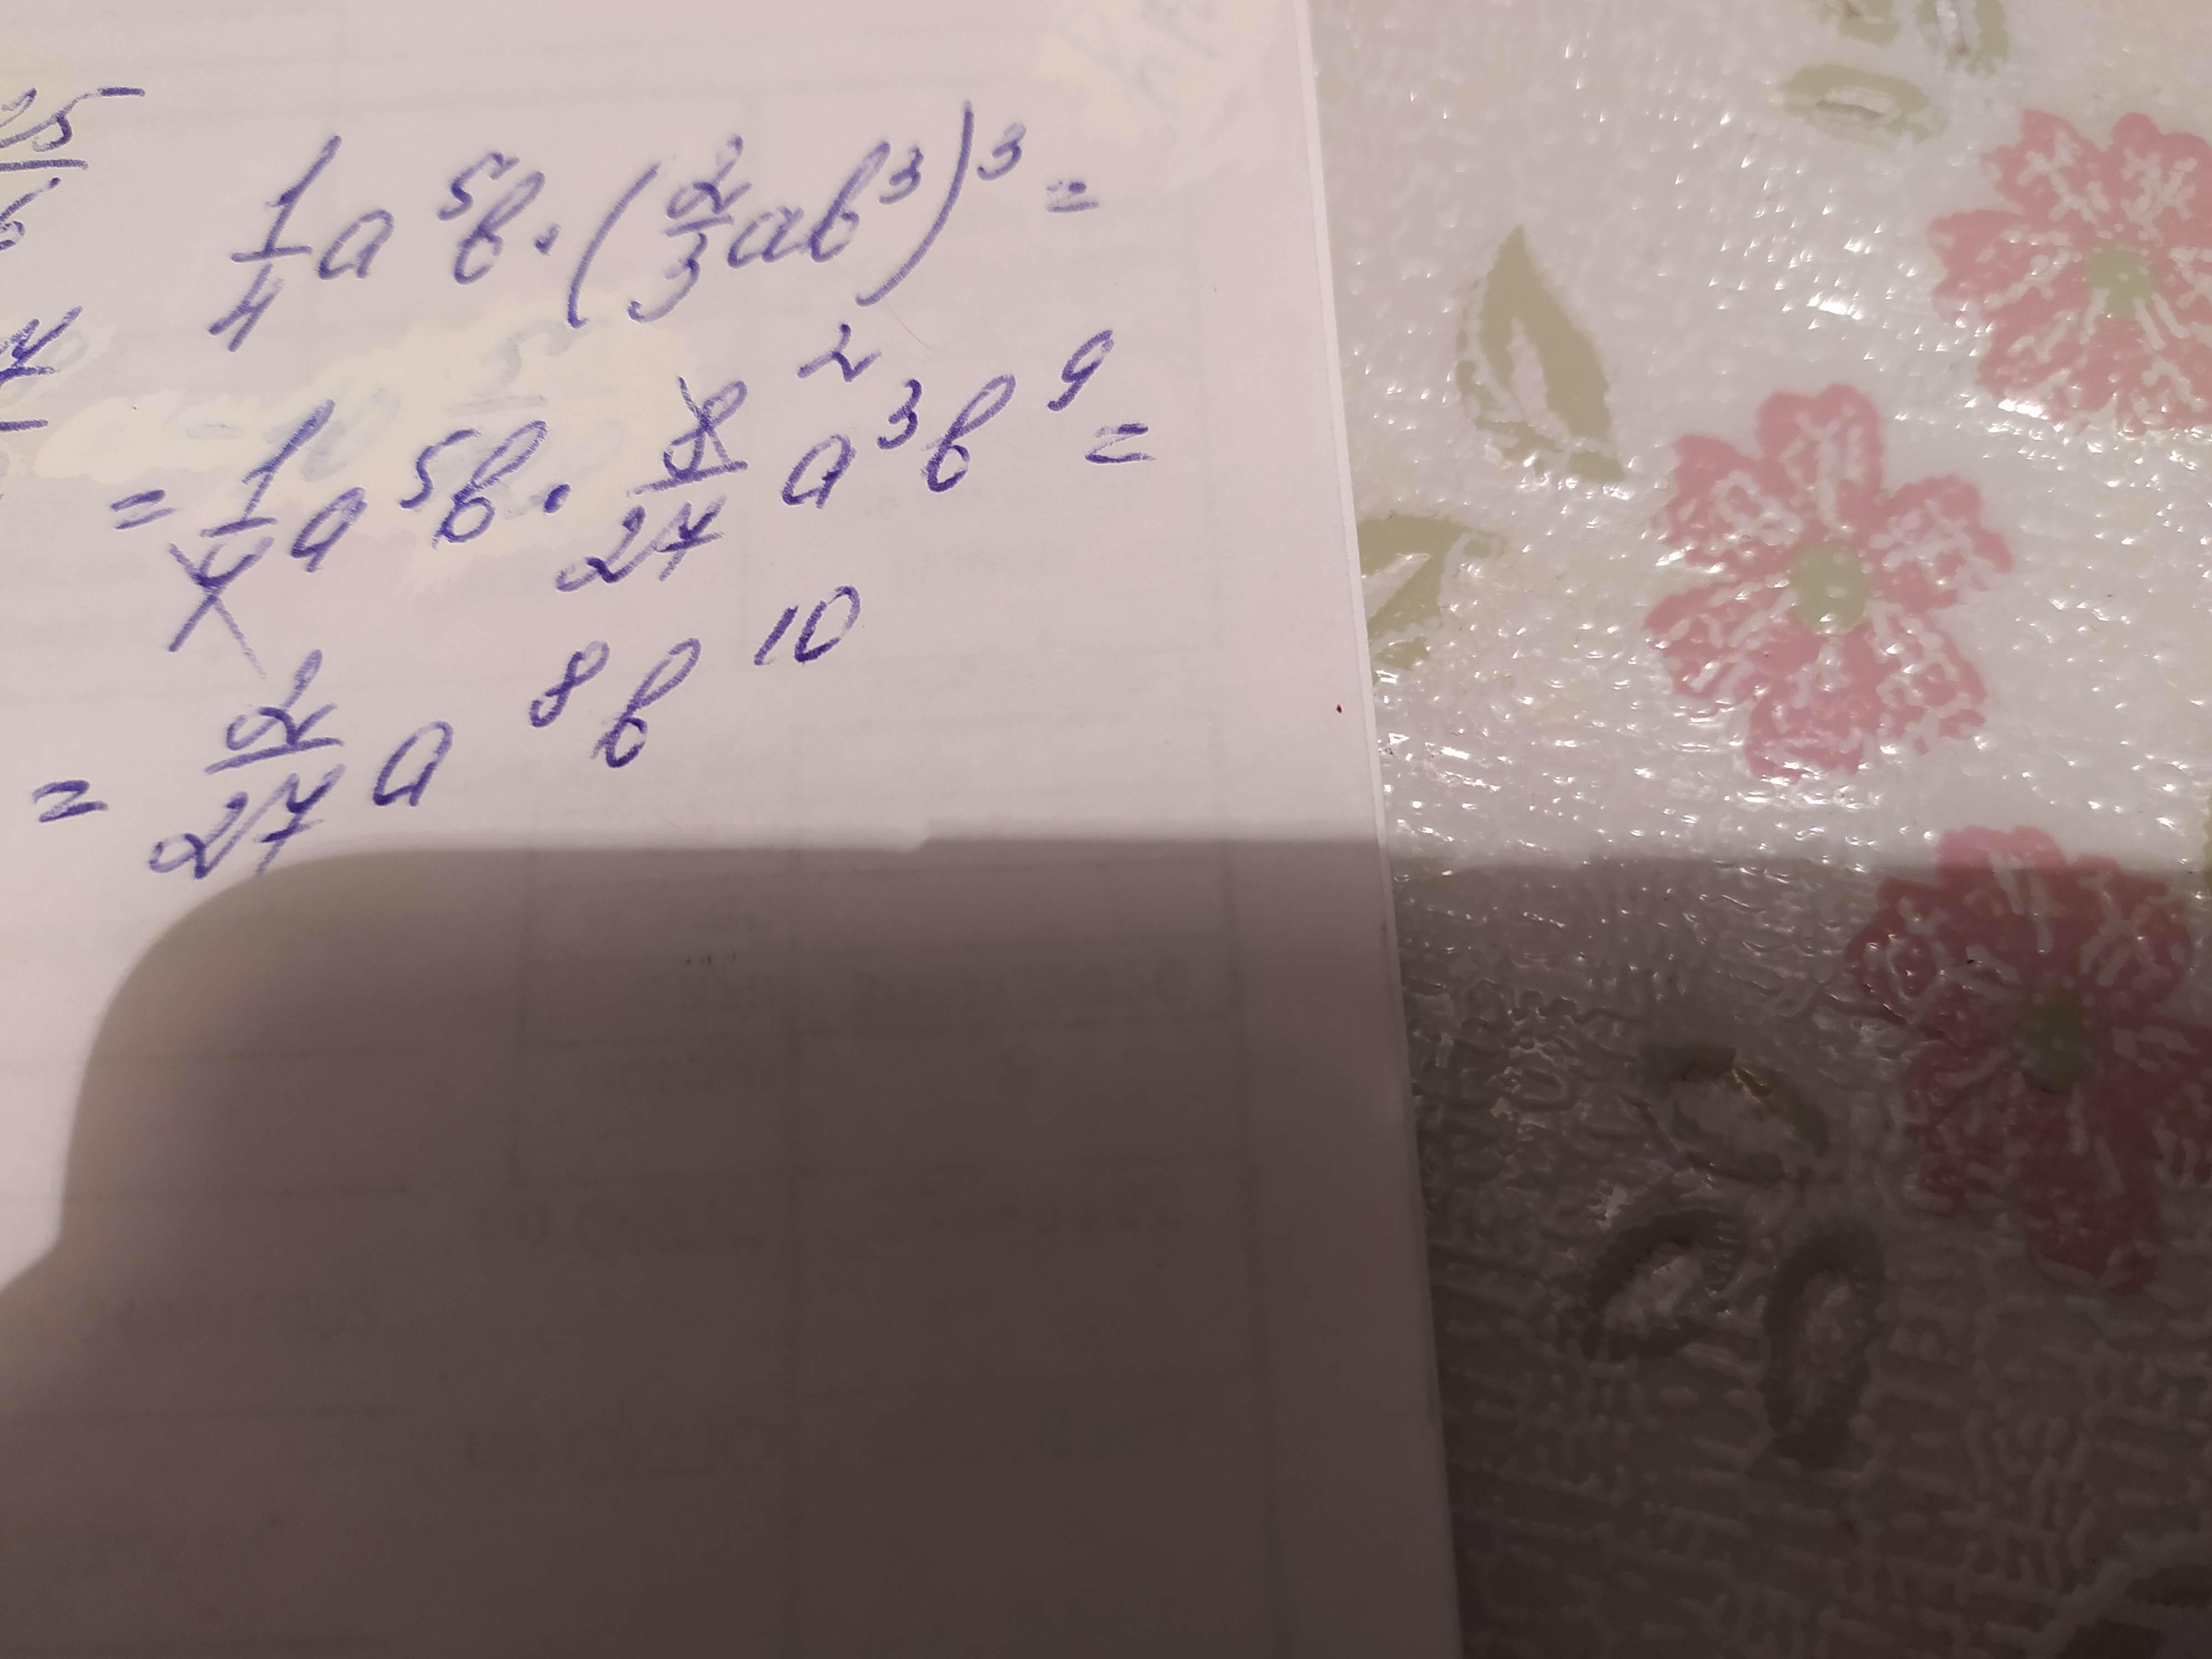 25
6
1/4 a⁵b · (2/3 ab³)³ =
= 1/4 a⁵b · 8/27 ² a³b⁹ =
= 2/27 a⁸b¹⁰